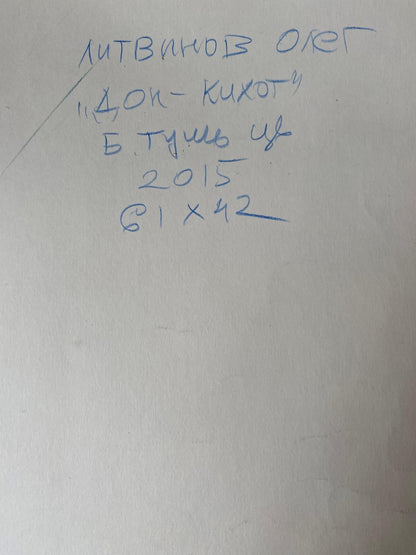 ЛИТВИНОВ ОЛЕГ
„ДОН-КИХОТ"
Б. тушь цв
2015
61 x 42